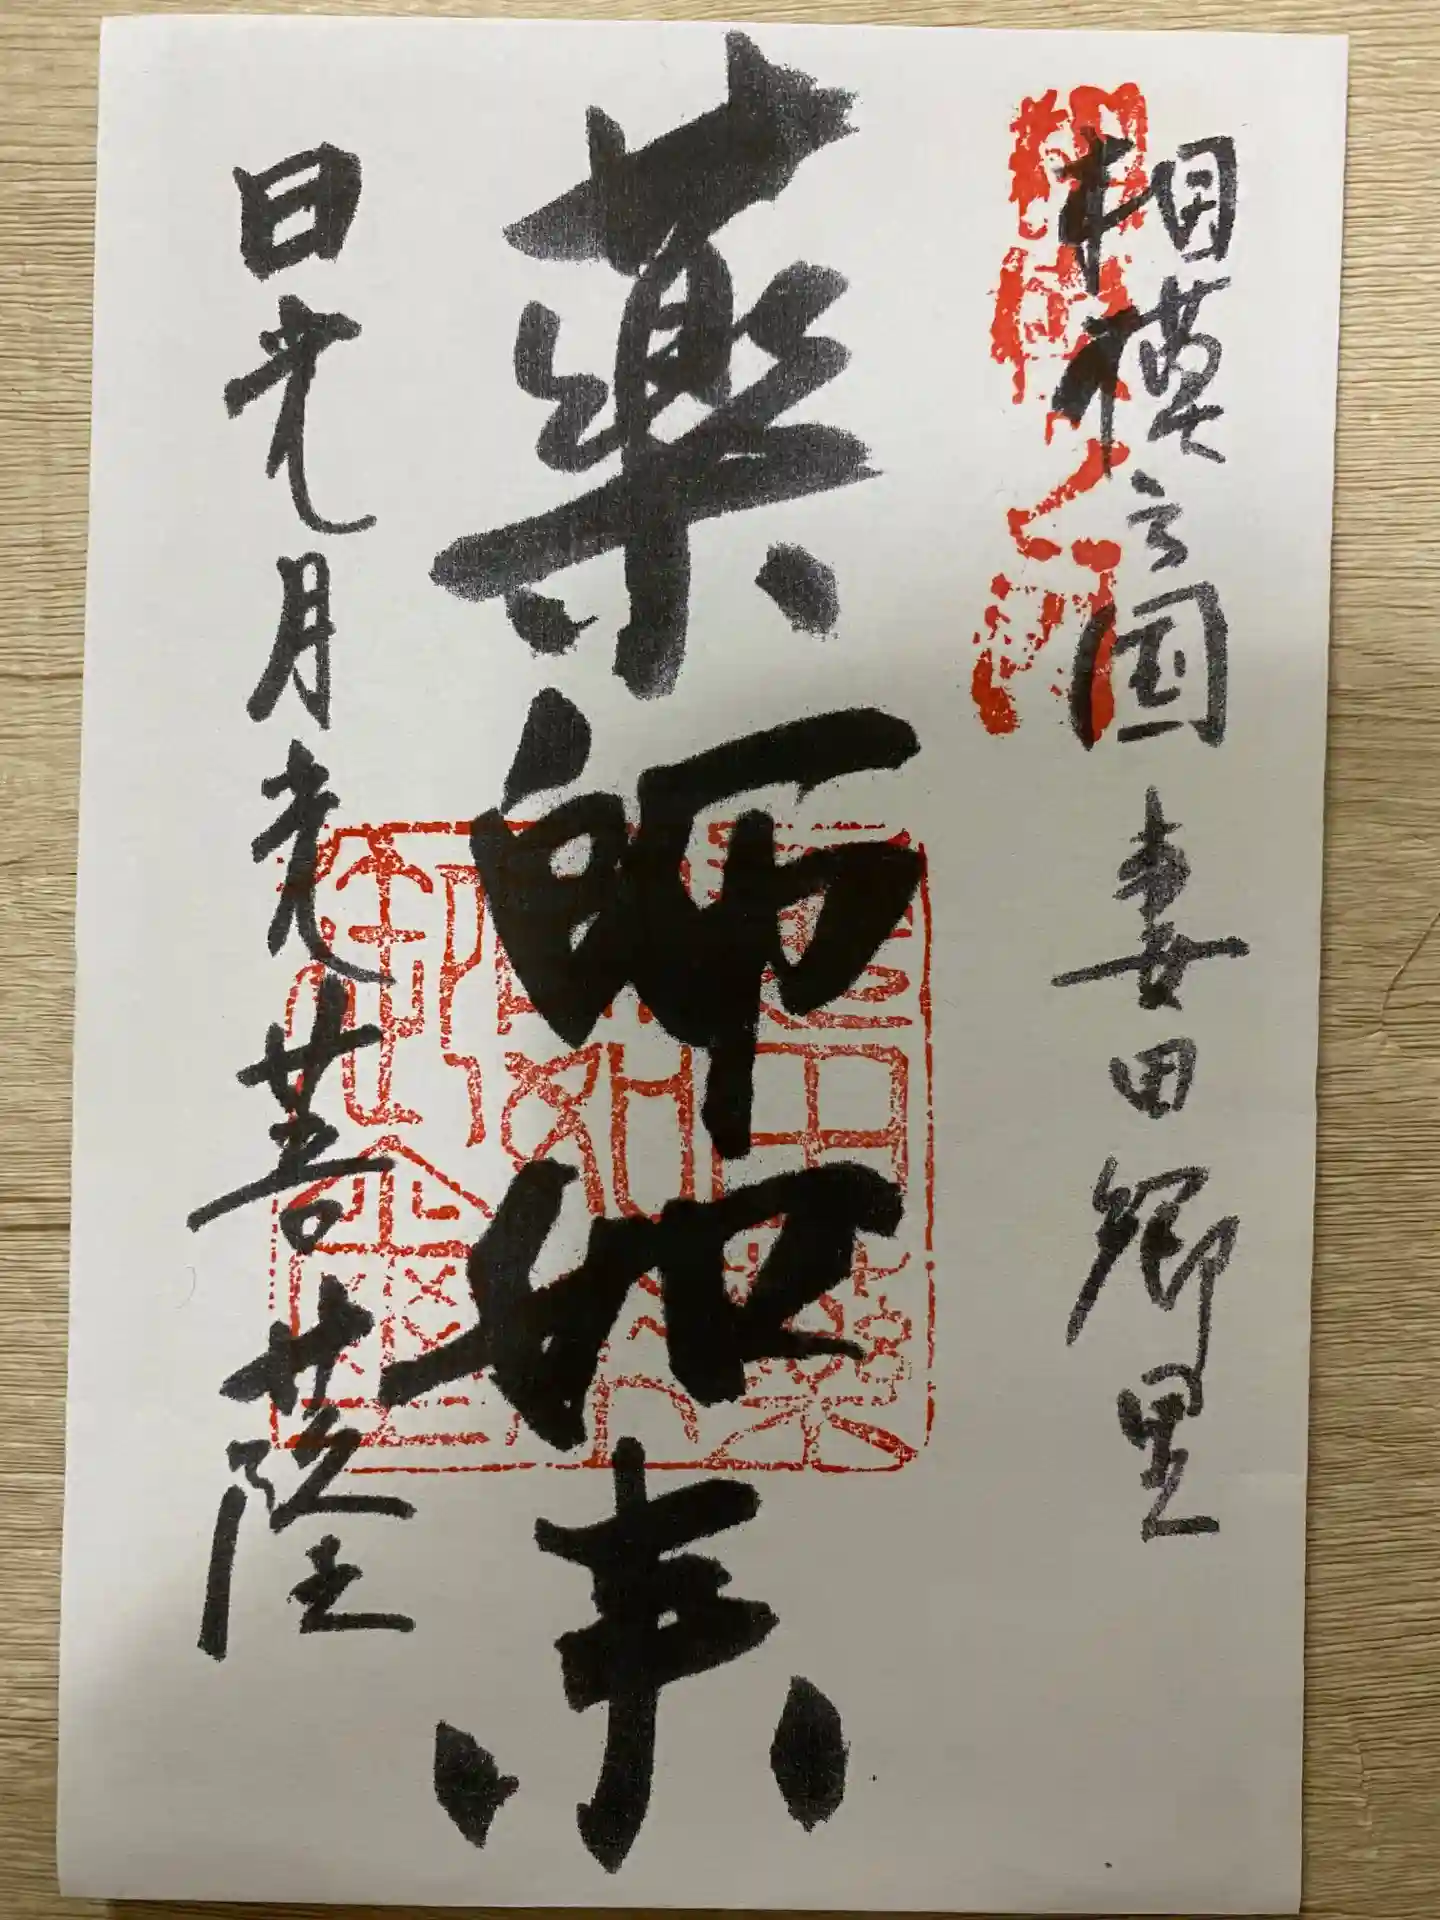 相模之国 妻田郷里
薬師如来
日光月光菩薩